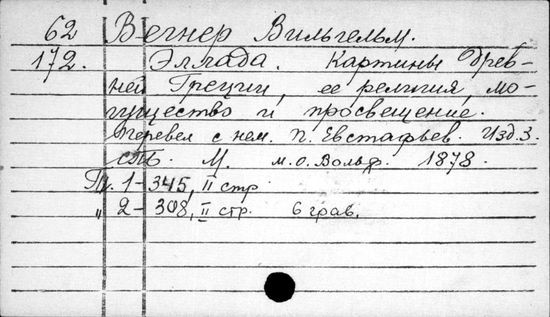 62 Вегнер Вильгельм.
172. Эллада. Картины древ-
ней Греции, ее религия, мо-
гущество и просвещение.
Перевел с нем. П. Евстафьев. Изд. 3.
М. М.О. Вольф. 1878.
Т. 1 - 345, II стр.
" 2 - 308, II стр. 6 грав.